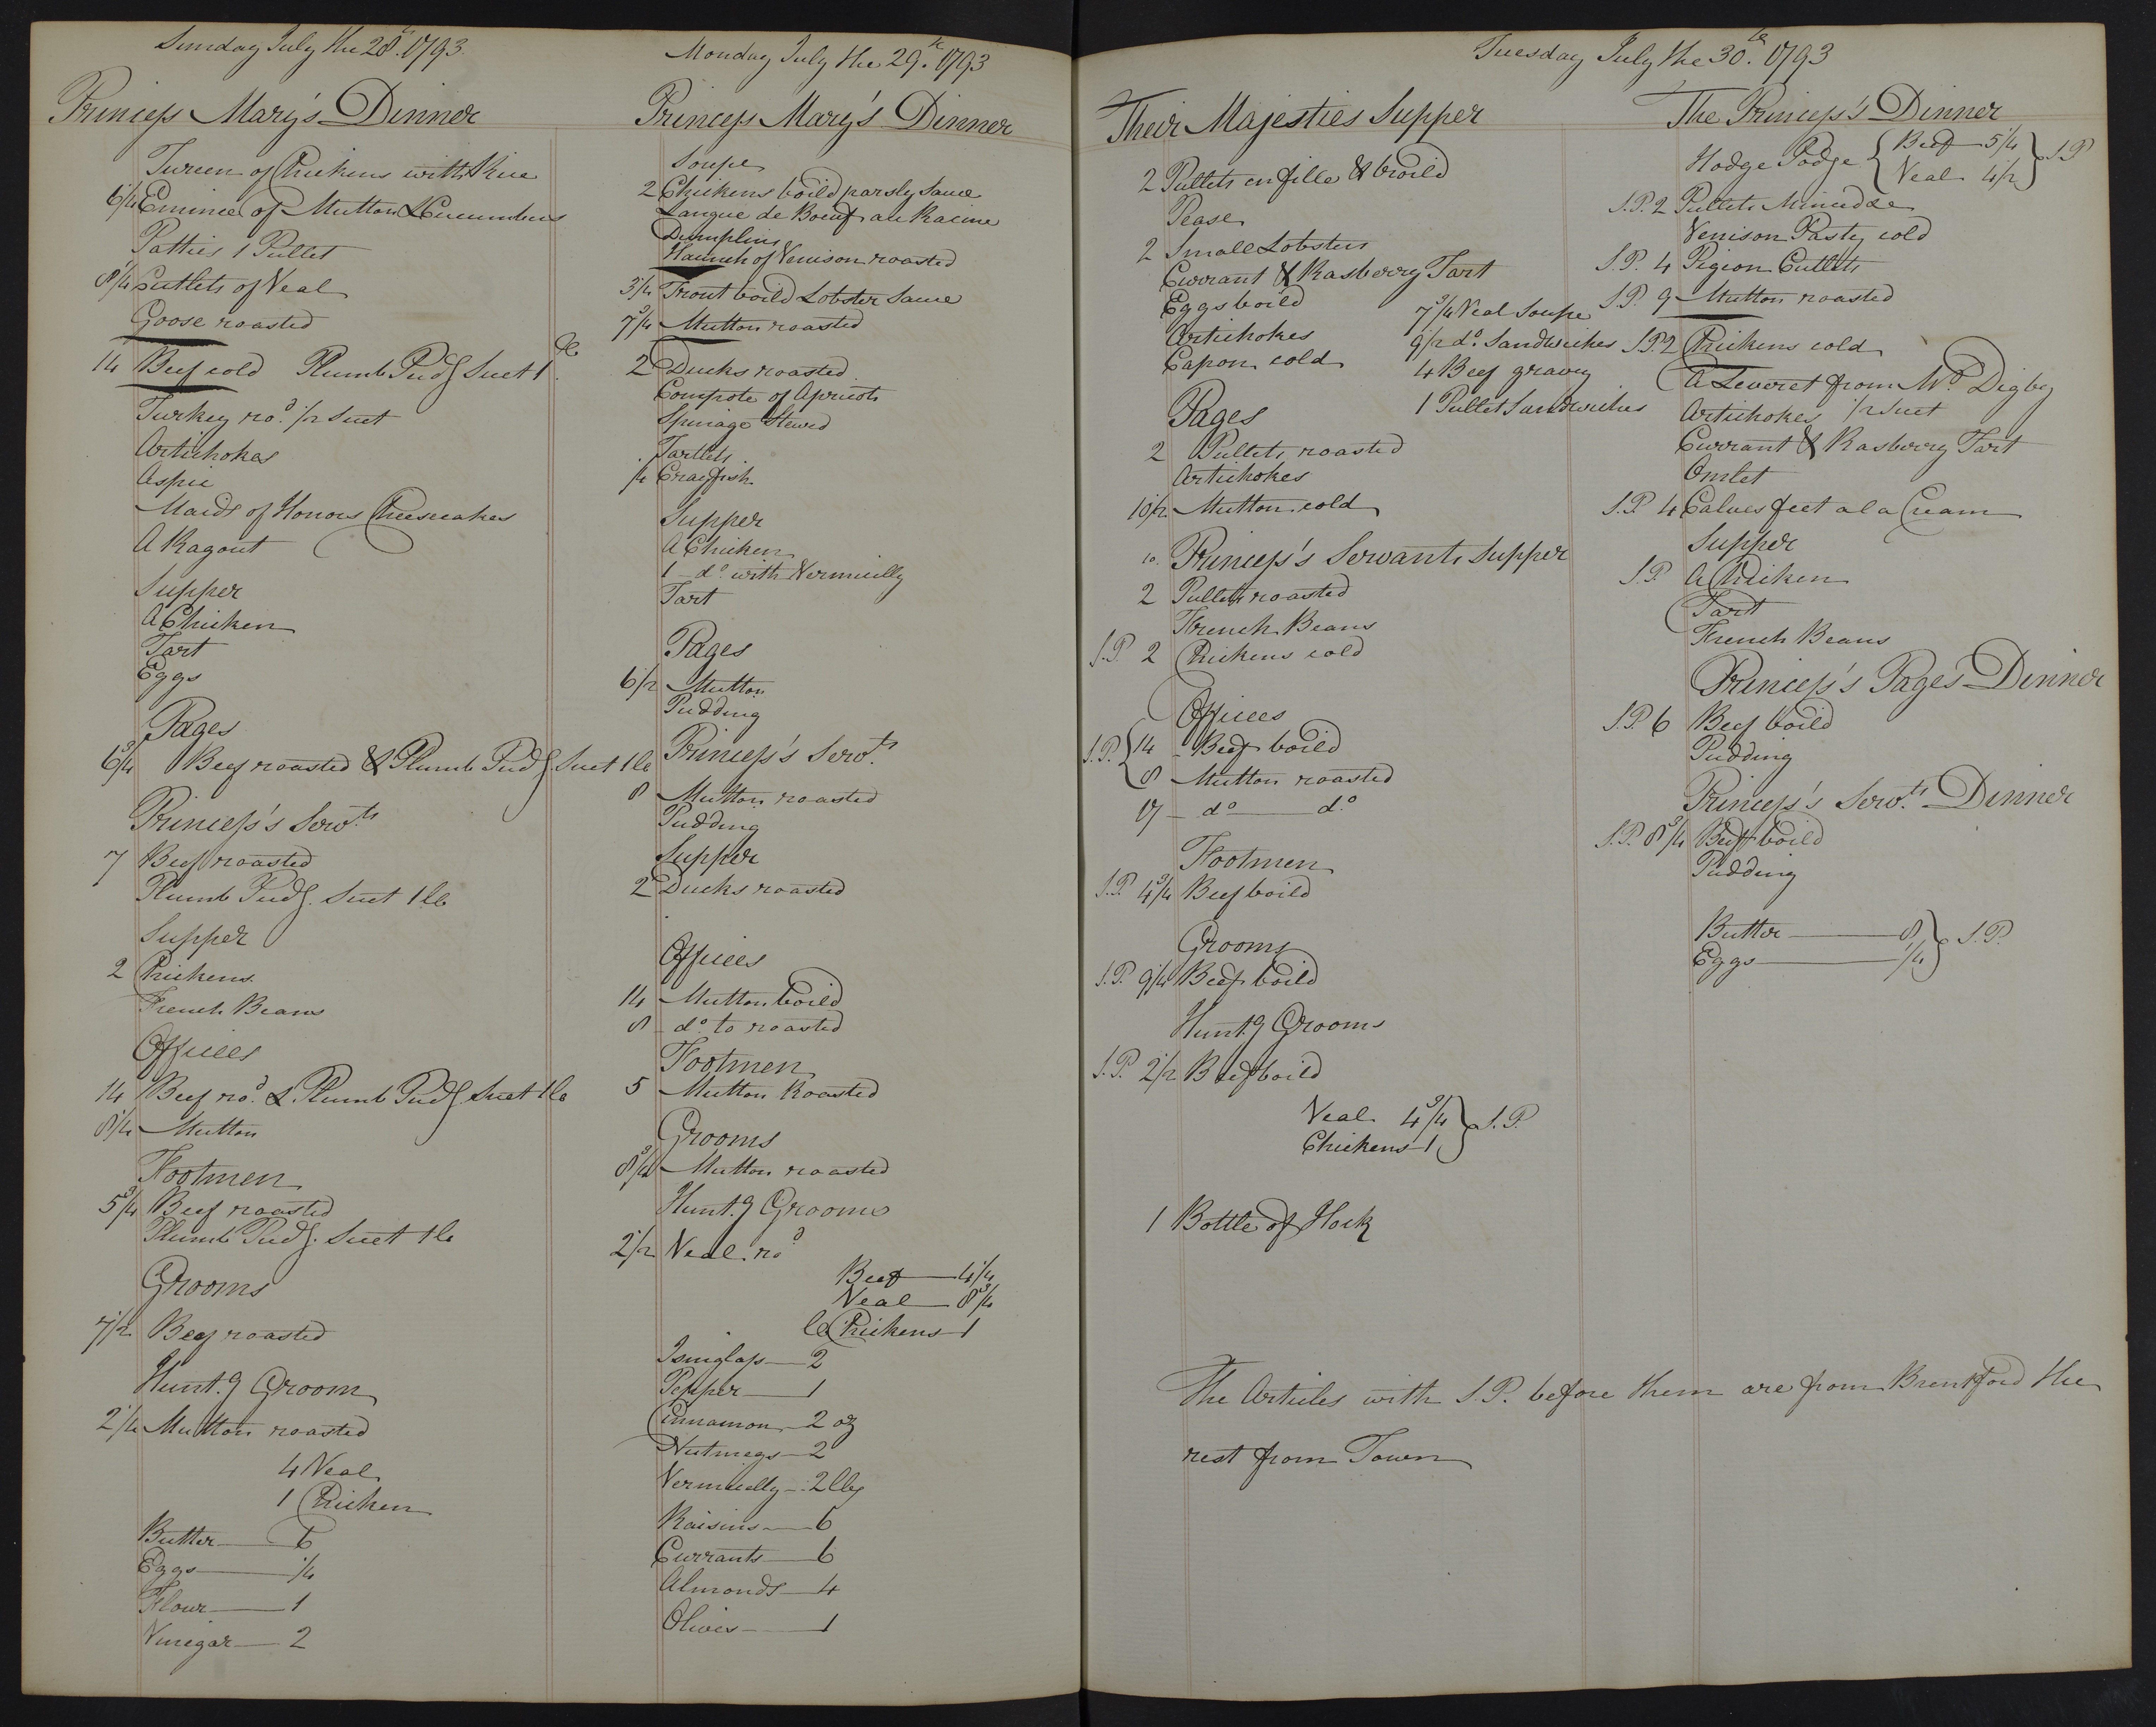 Sunday July the 28th. 1793.
Princess Mary's Dinner
Tureen of Chickens with Rice
6 1/4 Emincé of Mutton & Cucumbers
Patties 1 Pullet
8 1/4 Cutlets of Veal
Goose roasted
14 Beef cold Plumb Pudg Suet 1 lb
Turkey rod. 1/2 Suet
Artichokes
Aspic
Maids of Honour Cheesecakes
A Ragout
Supper
A Chicken
Tart
Eggs
Pages
6 3/4 Beef roasted & Plumb Pudg. Suet 1 lb
Princess's Servts
7 Beef roasted
Plumb Pudg. Suet 1 lb
Supper
2 Chickens
French Beans
Offices
14 Beef rod. & Plumb Pudg. Suet 1 lb
8 1/4 Mutton
Footmen
5 3/4 Beef roasted
Plumb Pudg. Suet 1 lb
Grooms
7 1/2 Beef roasted
Hunt.g Groom
2 1/4 Mutton roasted
4 Veal
1 Chicken
Butter 6
Eggs 1/4
Flour 1
Vinegar 2
Monday July the 29th. 1793
Princess Mary's Dinner
Soupe
2 Chickens boild parsly Sauce
Langue de Boeuf au Racine
Dumplins
Haunch of Venison roasted
3 1/4 Trout boild Lobster Sauce
7 3/4 Mutton roasted
2 Ducks roasted
Compote of Apricots
Spinage Stewd
Tartlets
1/4 Crayfish
Supper
A Chicken
1 do. with Vermicilly
Tart
Pages
6 1/2 Mutton
Pudding
Princess's Servts
8 Mutton roasted
Pudding
Supper
2 Ducks roasted
Offices
14 Mutton boild
8 do. to roasted
Footmen
5 Mutton Roasted
Grooms
8 3/4 Mutton roasted
Hunt.g Grooms
2 1/2 Veal rod
Beef 4 1/4
Veal 8 3/4
Chickens 1
Isinglass 2
Pepper 1
Cinnamon 2 oz
Nutmegs 2
Vermicelly 2 lbs
Raisins 6
Currants 6
Almonds 4
Olives 1
Tuesday July the 30th. 1793
Their Majesties Supper
2 Pullets en fille & broild
Pease
2 Small Lobsters
Currant & Rasberry Tart
Eggs boild
7 3/4 Veal Soupe
Artichokes
9 1/2 do. Sandwiches
Capon cold
4 Beef gravey
1 Pullet Sandwiches
Pages
2 Pullets roasted
Artichokes
10 1/2 Mutton cold
10. Princess's Servants Supper
2 Pullets roasted
French Beans
S.P. 2 Chickens cold
Offices
S.P. { 14 Beef boild
8 Mutton roasted
17 do do.
Footmen
S.P. 4 3/4 Beef boild
Grooms
S.P. 9 1/4 Beef boild
Hunt.g Grooms
S.P. 2 1/2 Beef boild
Veal 4 3/4 } S.P.
Chickens 1
1 Bottle of Hock
The Articles with S.P. before them are from Brentford the
rest from Town
The Princess's Dinner
Hodge Podge { Beef 5 1/4 } S.P
Veal 4 1/2
S.P. 2 Pullets Mincd &c
Venison Pasty cold
S.P. 4 Pigeon Cutlets
S.P. 9 Mutton roasted
S.P. 2 Chickens cold
A Leveret from Mr. Digby
Artichokes 1/2 Suet
Currant & Rasberry Tart
Omlet
S.P. 4 Calves feet a la Cream
Supper
S.P. A Chicken
Tart
French Beans
Princess's Pages Dinner
S.P. 6 Beef boild
Pudding
Princess's Servts. Dinner
S.P. 8 3/4 Beef boild
Pudding
Butter 8 } S.P.
Eggs 1/4